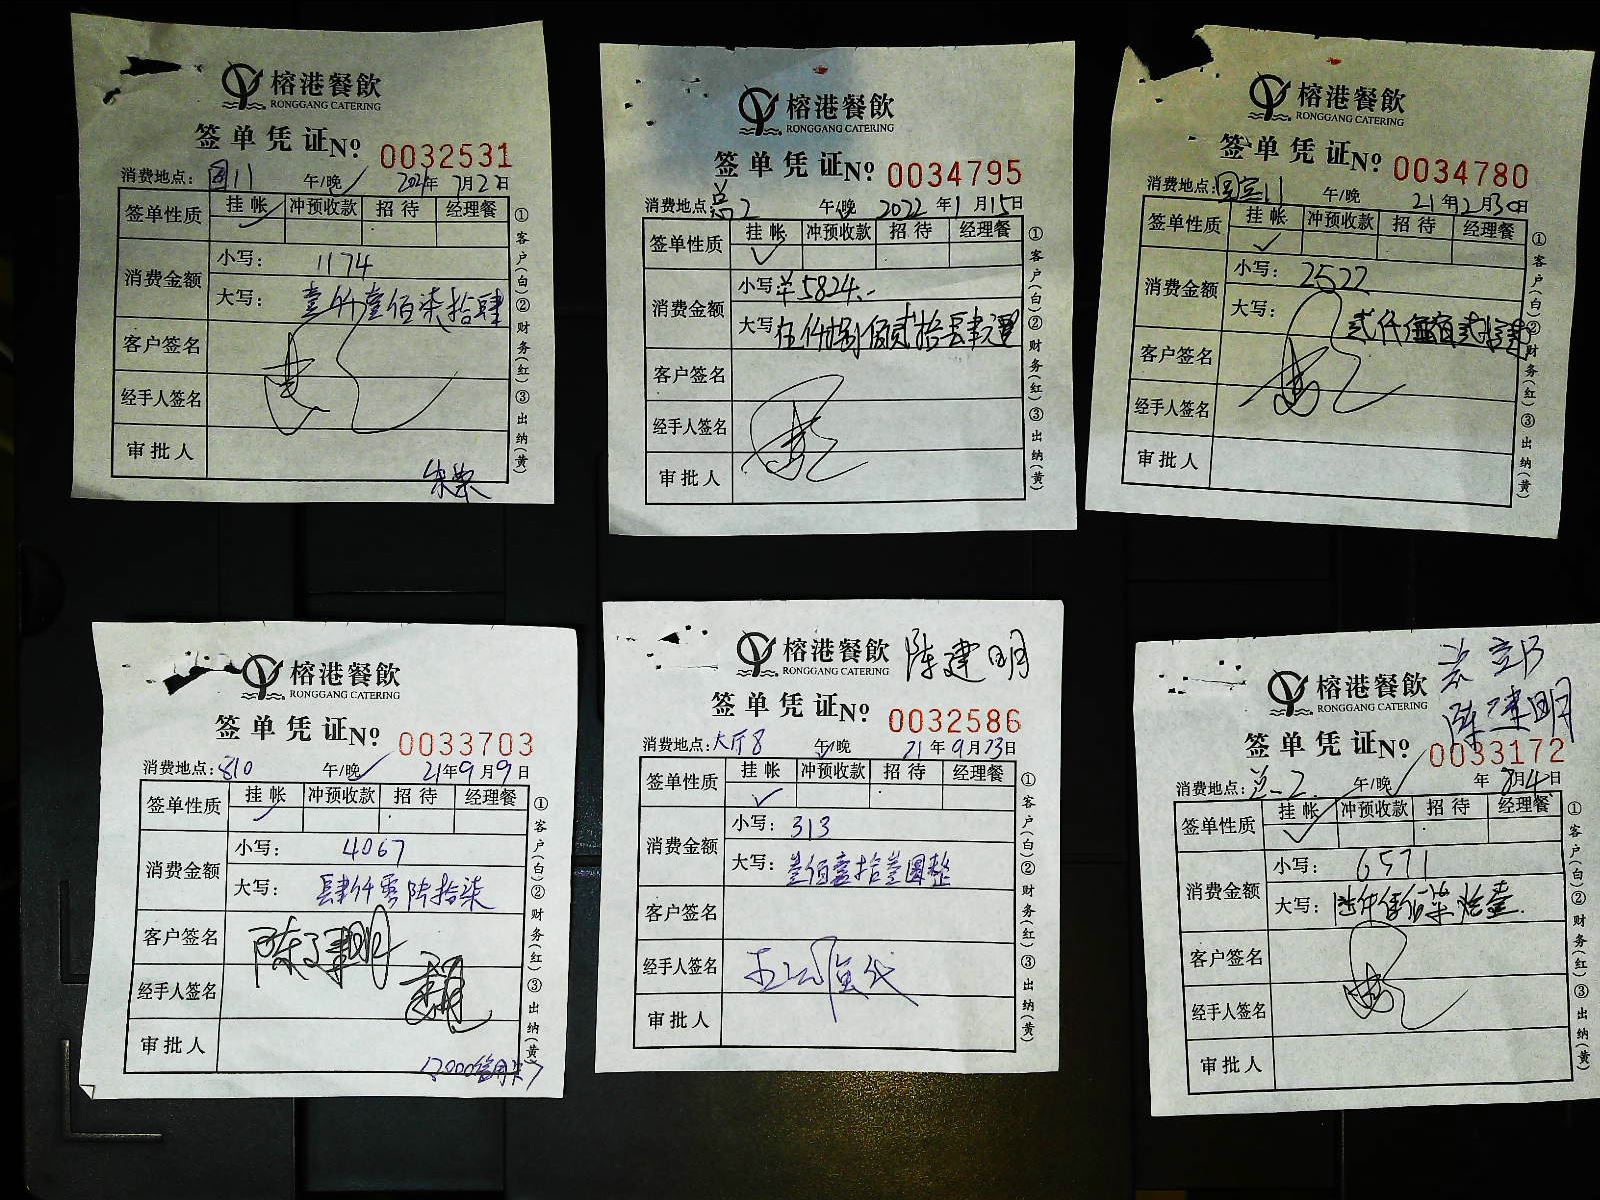 榕港餐飲
RONGGANG CATERING
签单凭证No 0032531
消费地点: 国11 午/晚✓ 2021年7月22日
签单性质 挂帐 冲预收款 招待 经理餐
消费金额 小写: 1174
大写: 壹仟壹佰柒拾肆
客户签名
经手人签名
审批人
①客户(白)②财务(红)③出纳(黄)
榕港餐飲
RONGGANG CATERING
签单凭证No 0034795
消费地点: 总2 午/晚 2022年1月15日
签单性质 挂帐 冲预收款 招待 经理餐
消费金额 小写: 5824.-
大写: 伍仟捌佰贰拾肆元整
客户签名
经手人签名
审批人
①客户(白)②财务(红)③出纳(黄)
榕港餐飲
RONGGANG CATERING
签单凭证No 0034780
消费地点: 国宴11 午/晚 21年2月30日
签单性质 挂帐 冲预收款 招待 经理餐
消费金额 小写: 2522
大写: 贰仟伍佰贰拾贰
客户签名
经手人签名
审批人
①客户(白)②财务(红)③出纳(黄)
榕港餐飲
RONGGANG CATERING
签单凭证No 0033703
消费地点: 810 午/晚✓ 21年9月9日
签单性质 挂帐 冲预收款 招待 经理餐
消费金额 小写: 4067
大写: 肆仟零陆拾柒
客户签名 陈建明
经手人签名
审批人
①客户(白)②财务(红)③出纳(黄)
榕港餐飲 陈建明
RONGGANG CATERING
签单凭证No 0032586
消费地点: 大厅8 午/晚 21年9月23日
签单性质 挂帐 冲预收款 招待 经理餐
消费金额 小写: 313
大写: 叁佰壹拾叁圆整
客户签名
经手人签名
审批人
①客户(白)②财务(红)③出纳(黄)
榕港餐飲
RONGGANG CATERING
陈建明
签单凭证No 0033172
消费地点: 总-2 午/晚✓ 年8月4日
签单性质 挂帐 冲预收款 招待 经理餐
消费金额 小写: 6571
大写: 陆仟伍佰柒拾壹
客户签名
经手人签名
审批人
①客户(白)②财务(红)③出纳(黄)